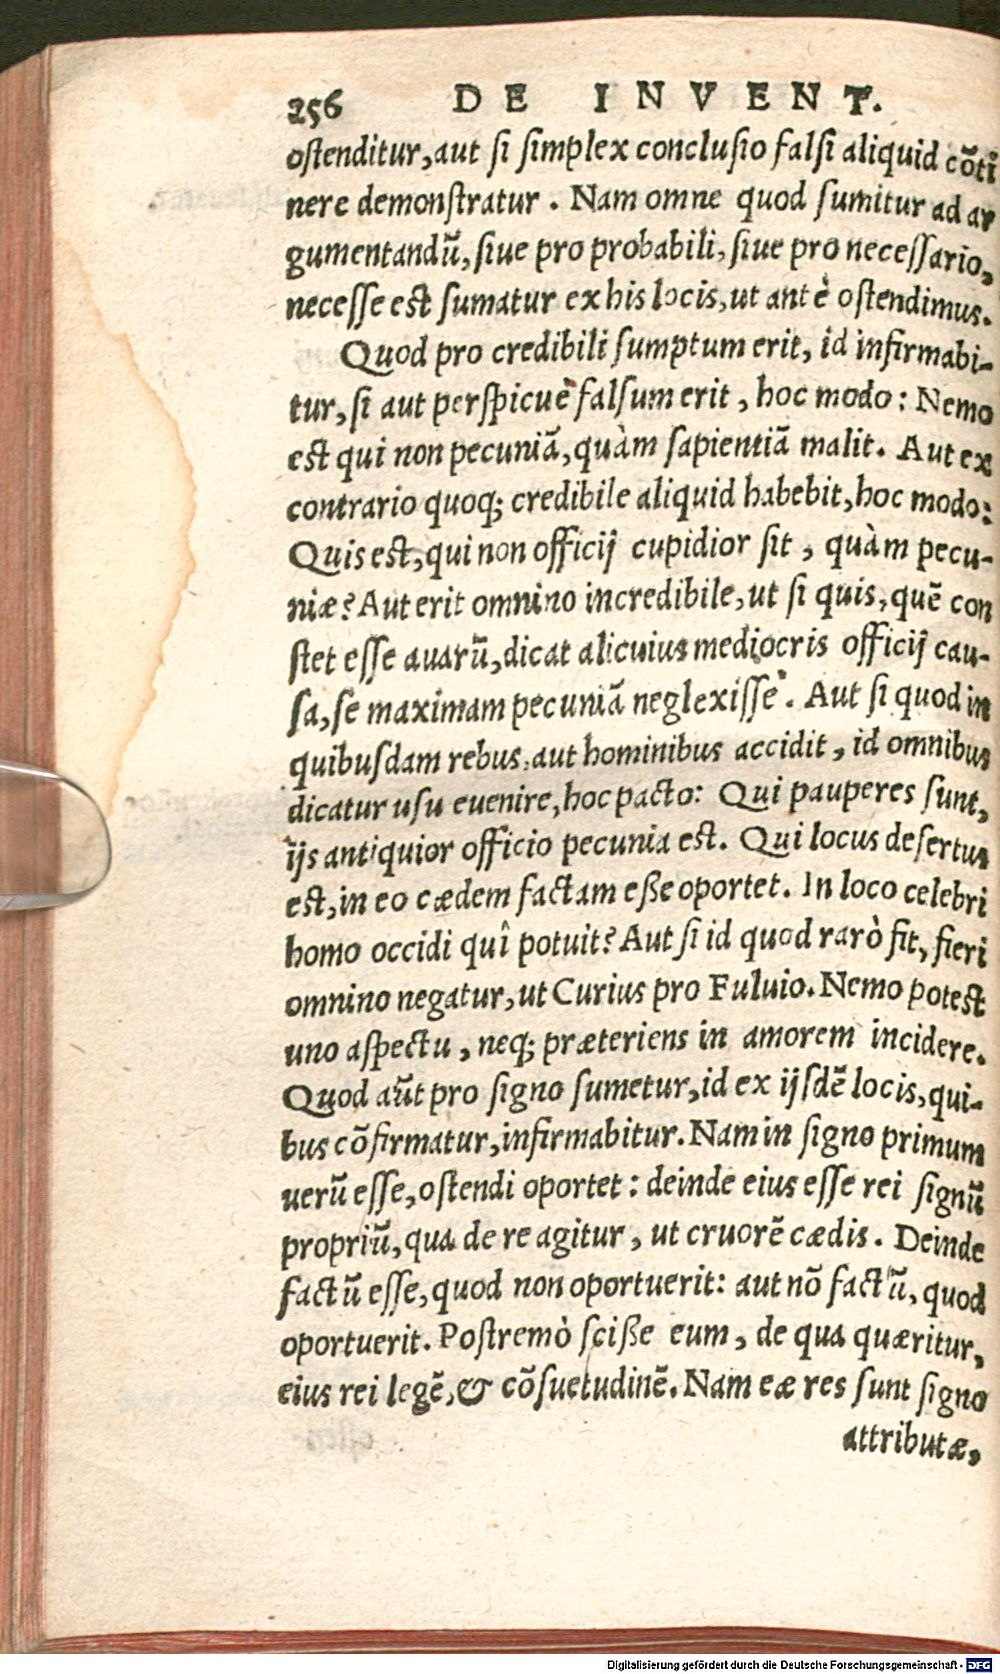 256 DE INVENT.
ostenditur, aut si simplex conclusio falsi aliquid cõti
nere demonstratur. Nam omne quod sumitur ad ar
gumentandũ, siue pro probabili, siue pro necessario,
necesse est sumatur ex his locis, ut antè ostendimus.
Quod pro credibili sumptum erit, id infirmabi-
tur, si aut perspicuè falsum erit, hoc modo: Nemo
est qui non pecuniã, quàm sapientiã malit. Aut ex
contrario quoq; credibile aliquid habebit, hoc modo:
Quis est, qui non officij cupidior sit, quàm pecu-
niæ? Aut erit omnino incredibile, ut si quis, quẽ con
stet esse auarũ, dicat alicuius mediocris officij cau-
sa, se maximam pecuniã neglexisse. Aut si quod in
quibusdam rebus, aut hominibus accidit, id omnibus
dicatur usu euenire, hoc pacto: Qui pauperes sunt,
ijs antiquior officio pecunia est. Qui locus desertus
est, in eo cædem factam eße oportet. In loco celebri
homo occidi quî potuit? Aut si id quod rarò fit, fieri
omnino negatur, ut Curius pro Fuluio. Nemo potest
uno aspectu, neq; præteriens in amorem incidere.
Quod aũt pro signo sumetur, id ex ijsdẽ locis, qui-
bus cõfirmatur, infirmabitur. Nam in signo primum
uerũ esse, ostendi oportet: deinde eius esse rei signũ
propriũ, qua de re agitur, ut cruorẽ cædis. Deinde
factũ esse, quod non oportuerit: aut nõ factũ, quod
oportuerit. Postremò sciße eum, de qua quæritur,
eius rei legẽ, & cõsuetudinẽ. Nam eæ res sunt signo
attributæ,
Digitalisierung gefördert durch die Deutsche Forschungsgemeinschaft - DFG